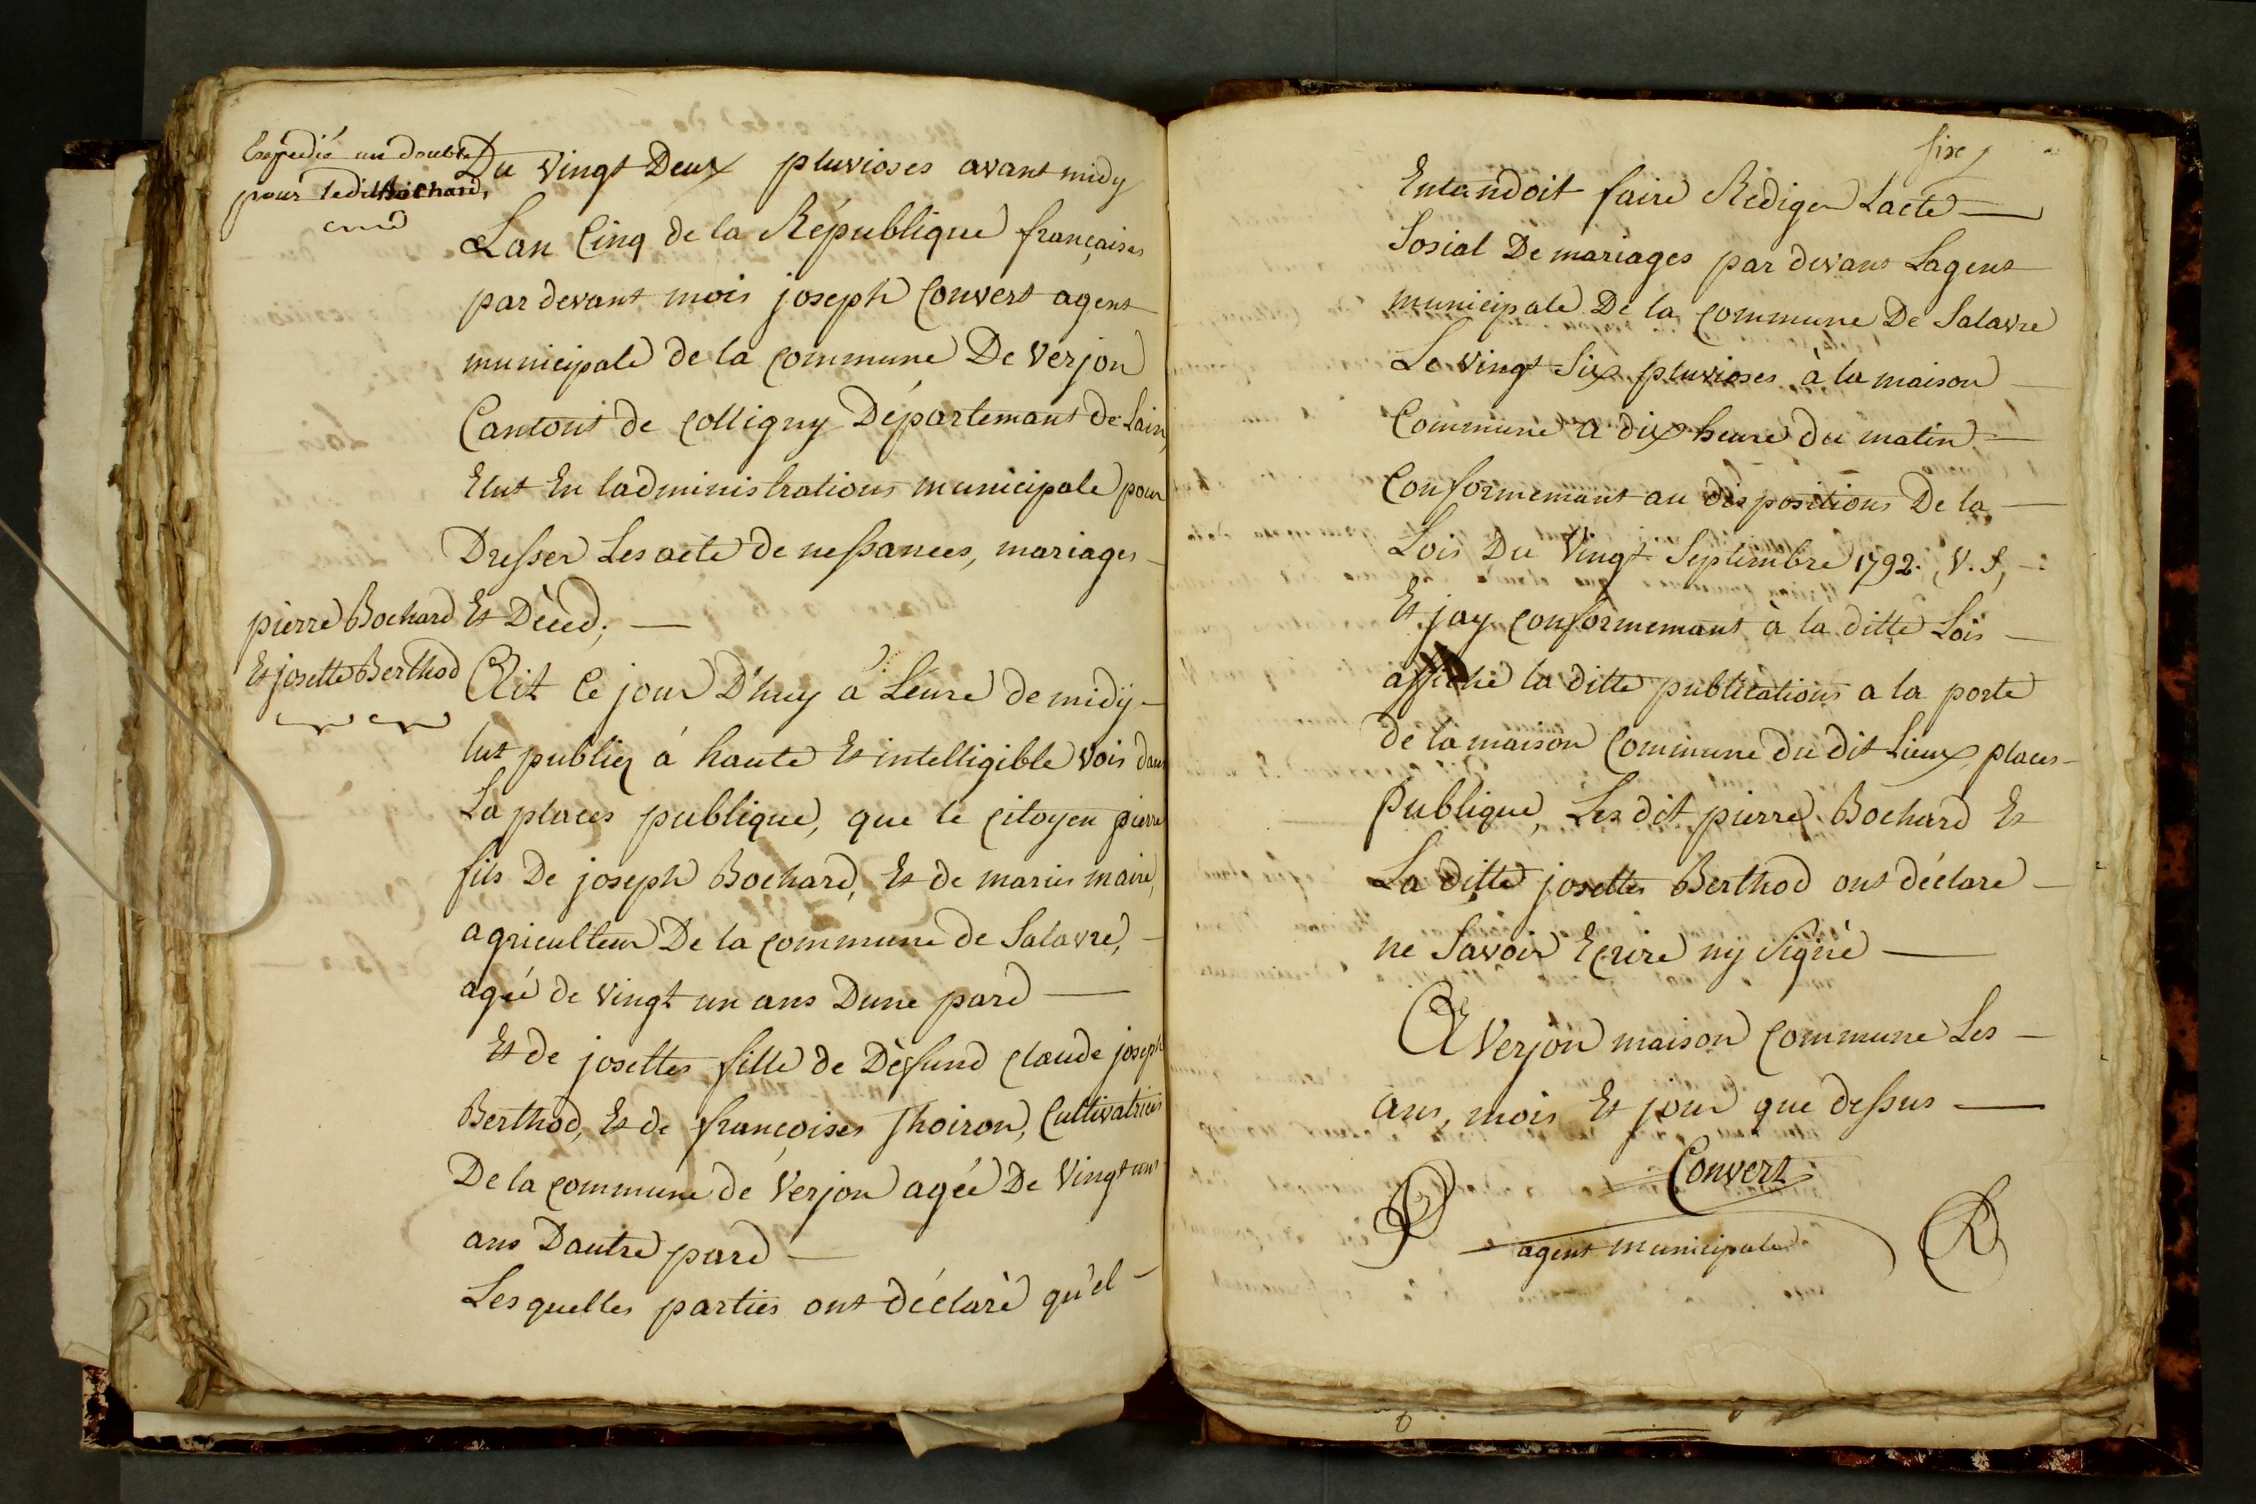 Expedié un double
pour ledit Bochard,
Du vingt Deux pluvioses avant midy
Lan Cinq de la République françaises
par devant mois joseph Convert agent
municipale de la commune De Verjon
Cantons de Colligny Départemant de Lain,
Elut En ladministrations municipale pour
Dresser Les acte de nessances, mariages
Et Dèced;
pierre Bochard
Et josette Berthod
Ait Ce jour D'huy a Leure de midÿ
lut publiez á haute Et intelligible Vois dans
La places publique, que le Citoyen pierre
fils De joseph Bochard, Et de maries maire,
agriculteur De la commune de Salavre,
agée de vingt un ans Dune pard
Et de josettes fille de Dèfund Claude joseph
Berthod, Et de françoises Thoiron, Cultivatrices
De la commune de Verjon agée De Vingt un
ans Dautre pard
Les quelles parties ont déclaré qu'el
six
Entandoit faire Rediger Lacte
Sosial De mariages par devans Lagent
municipale De la commune De Salavre
Le vingt Six pluvioses a la maison
Commune a dix heure du matin
Conformemant au dispositions De la
Lois Du Vingt Septembre 1792. V. S,
Et jay conformemant a la ditte Lois
affiché la ditte publications a la porte
de la maison Commune du dit Lieux, places
Publique, Les dit pierre Bochard Et
La ditte josettes Berthod ont déclare
ne Savoir Ecrire ny Signé
A Verjon maison Commune Les
ans, mois Et jour que dessus
Convert
agent municipale